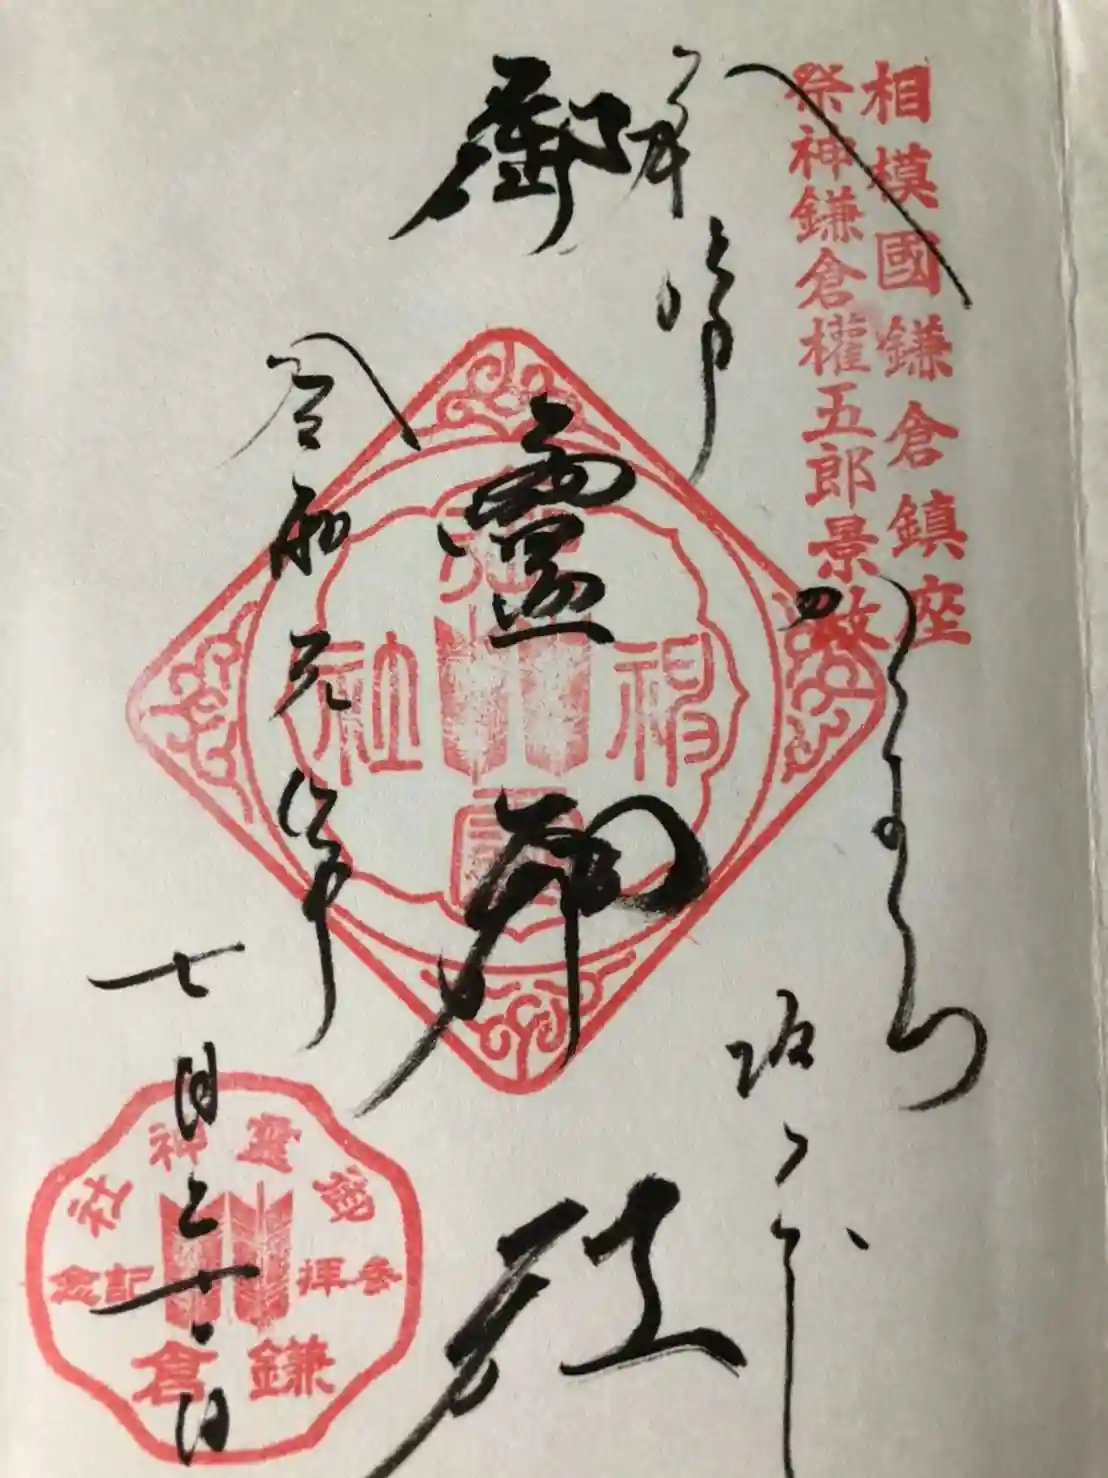 相模國鎌倉鎮座
祭神鎌倉權五郎景政
かまくら
坂ノ下
御靈神社
神社
令和元年
七月十日
御霊神社
参拝記念
鎌倉